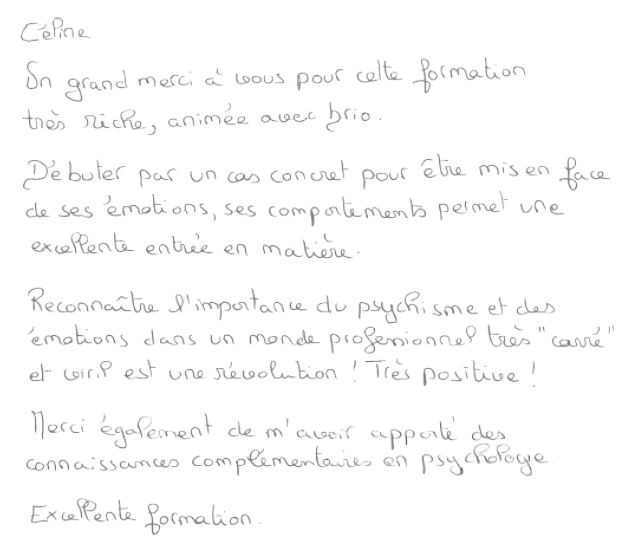 Céline
Un grand merci à vous pour cette formation
très riche, animée avec brio.
Débuter par un cas concret pour être mis en face
de ses émotions, ses comportements permet une
excellente entrée en matière.
Reconnaître l'importance du psychisme et des
émotions dans un monde professionnel très "carré"
et viril est une révolution ! Très positive !
Merci également de m'avoir apporté des
connaissances complémentaires en psychologie
Excellente formation.